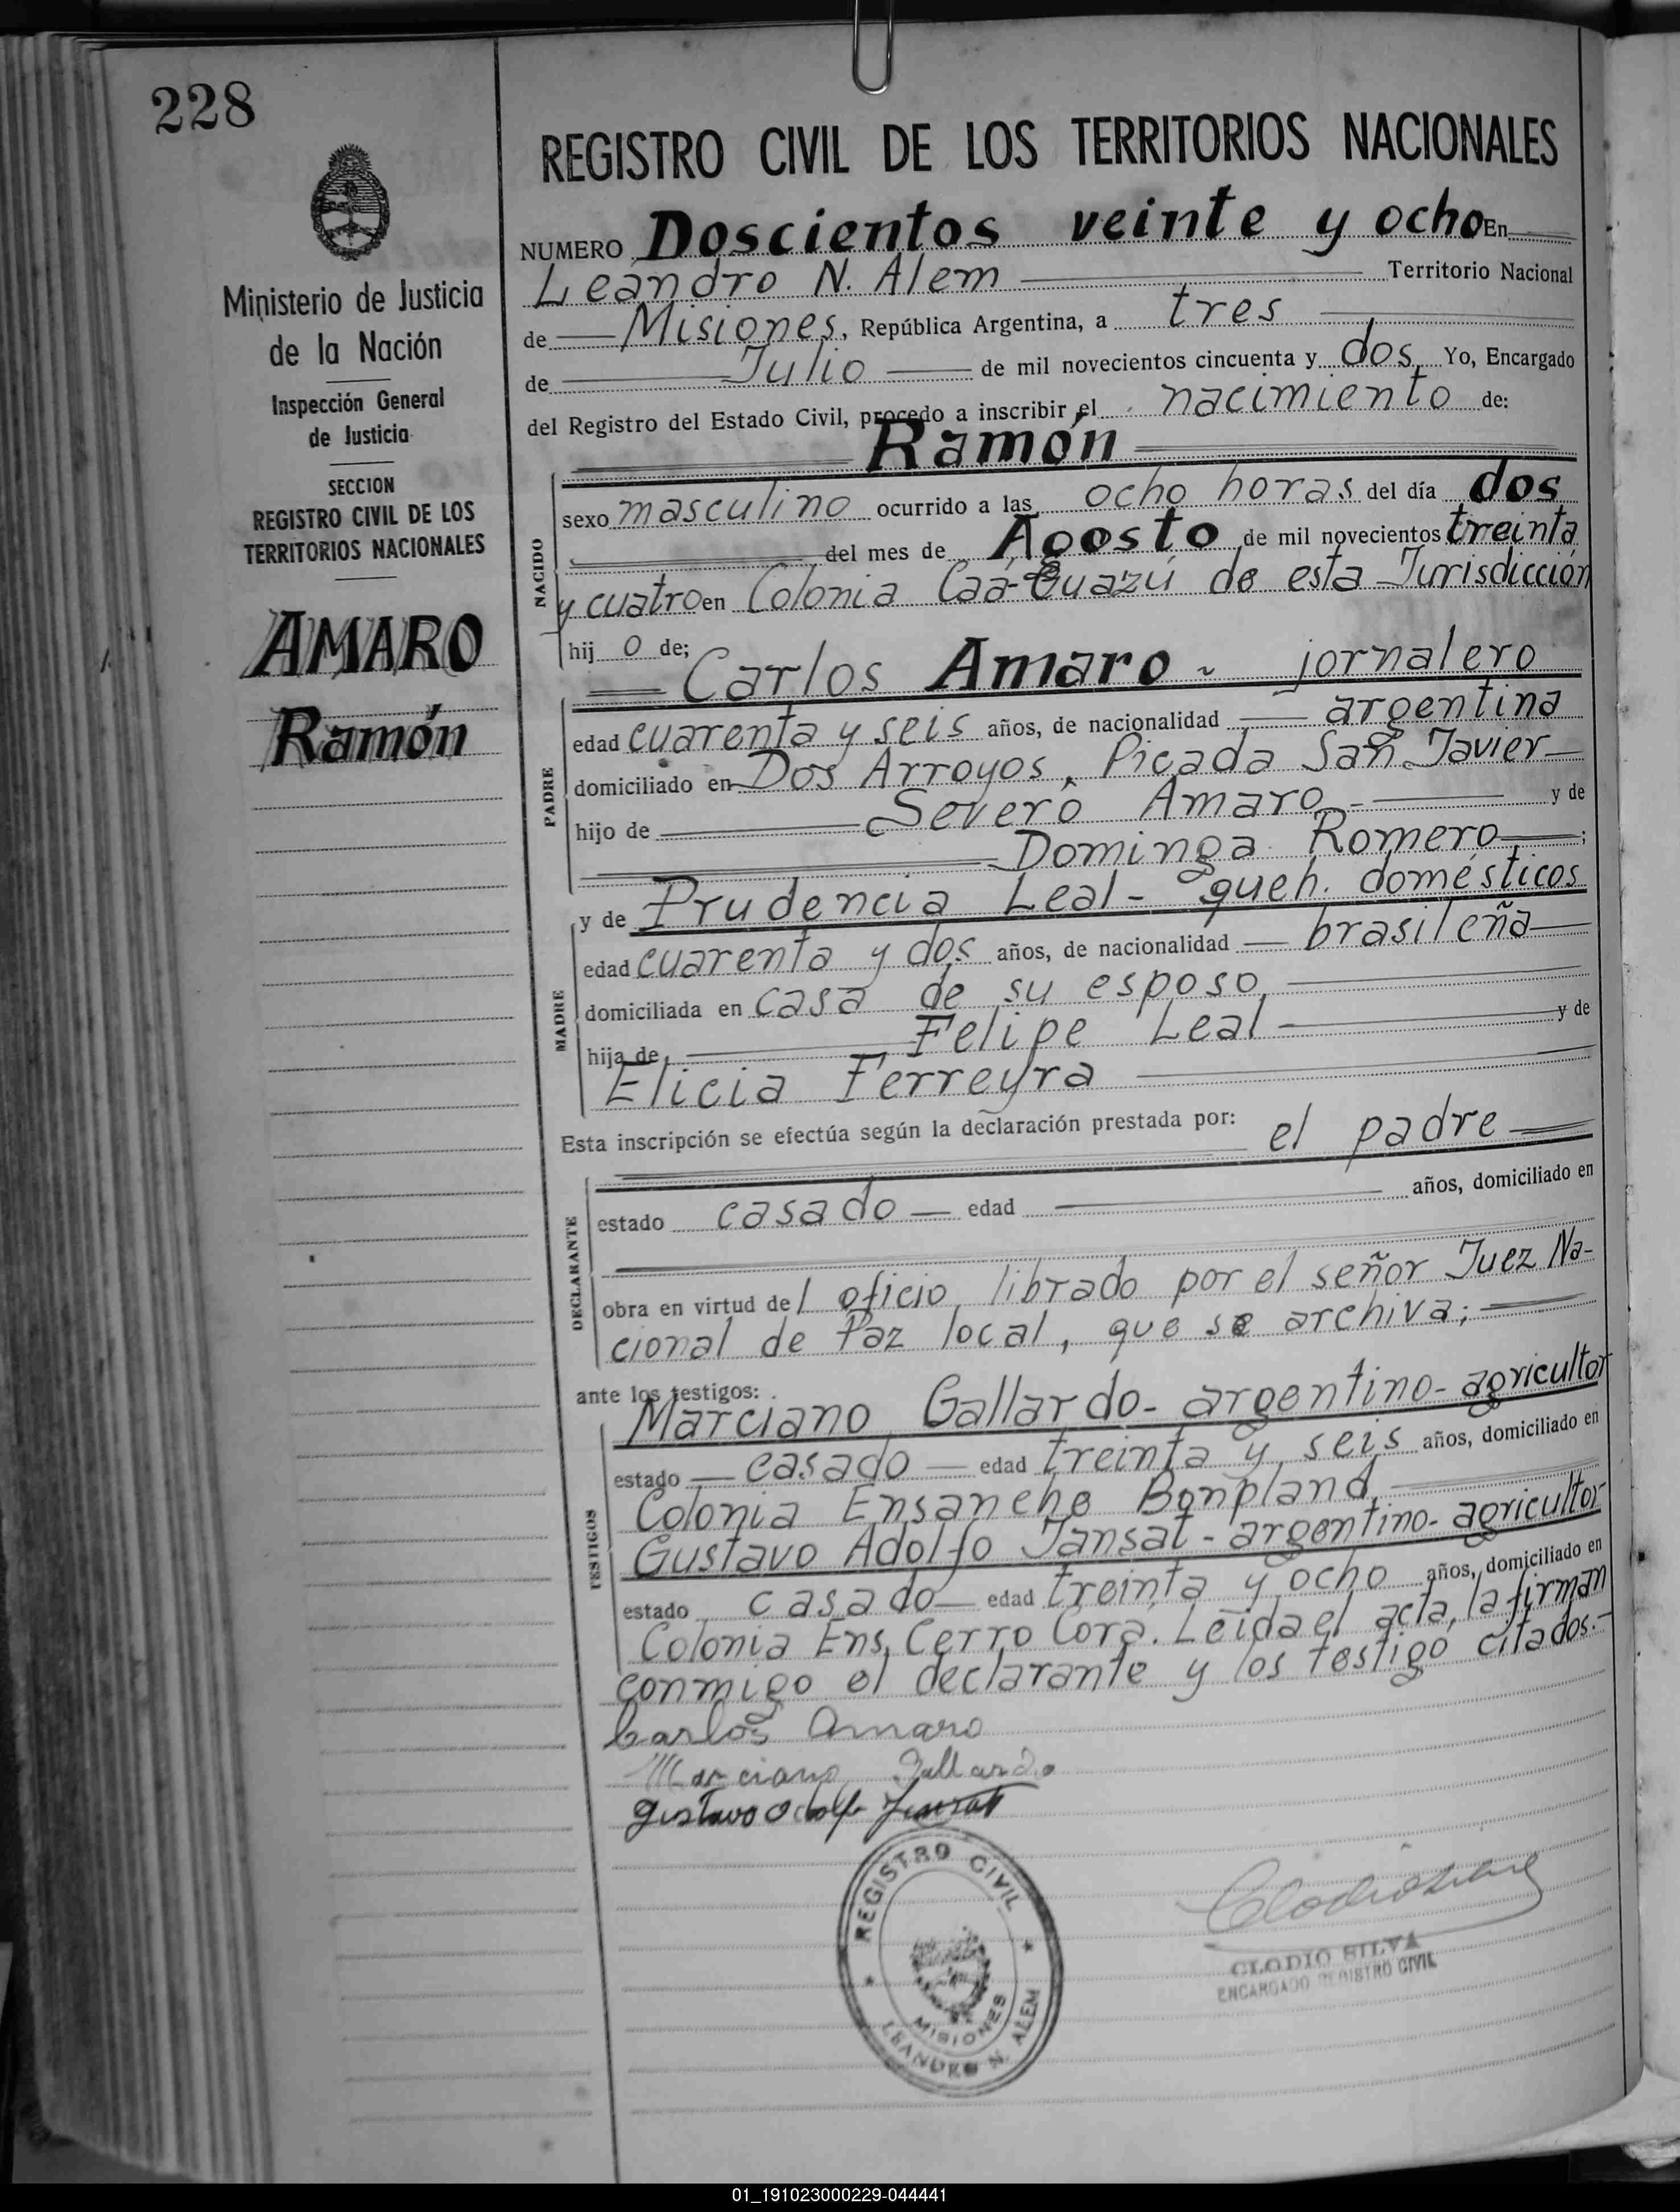 228
Ministerio de Justicia
de la Nación
Inspección General
de Justicia
SECCION
REGISTRO CIVIL DE LOS
TERRITORIOS NACIONALES
AMARO
Ramón
REGISTRO CIVIL DE LOS TERRITORIOS NACIONALES
NUMERO Doscientos veinte y ocho En
Leandro N. Alem Territorio Nacional
de Misiones, República Argentina, a tres
de Julio de mil novecientos cincuenta y dos, Yo, Encargado
del Registro del Estado Civil, procedo a inscribir el nacimiento de:
Ramón
NACIDO
sexo masculino ocurrido a las ocho horas del día dos
del mes de Agosto de mil novecientos treinta
y cuatro en Colonia Caá-Guazú de esta Jurisdicción
hij o de;
Carlos Amaro - jornalero
PADRE
edad cuarenta y seis años, de nacionalidad argentina
domiciliado en Dos Arroyos, Picada San Javier
hijo de Severo Amaro - y de
Dominga Romero ;
y de Prudencia Leal - queh. domésticos
MADRE
edad cuarenta y dos años, de nacionalidad brasileña
domiciliada en casa de su esposo,
hija de Felipe Leal y de
Elicia Ferreyra
Esta inscripción se efectúa según la declaración prestada por: el padre
DECLARANTE
estado casado edad años, domiciliado en
obra en virtud del oficio librado por el señor Juez Na-
cional de Paz local, que se archiva;
ante los testigos:
Marciano Gallardo - argentino - agricultor
TESTIGOS
estado casado edad treinta y seis años, domiciliado en
Colonia Ensanche Bonpland,
Gustavo Adolfo Jansat - argentino - agricultor
estado casado edad treinta y ocho años, domiciliado en
Colonia Ens. Cerro Corá. Leida el acta, la firman
conmigo el declarante y los testigo citados.-
Carlos Amaro
Marciano Gallardo
Gustavo Adolfo Jansat
REGISTRO CIVIL
MISIONES
LEANDRO N. ALEM
CLODIO SILVA
ENCARGADO REGISTRO CIVIL
01_191023000229-044441